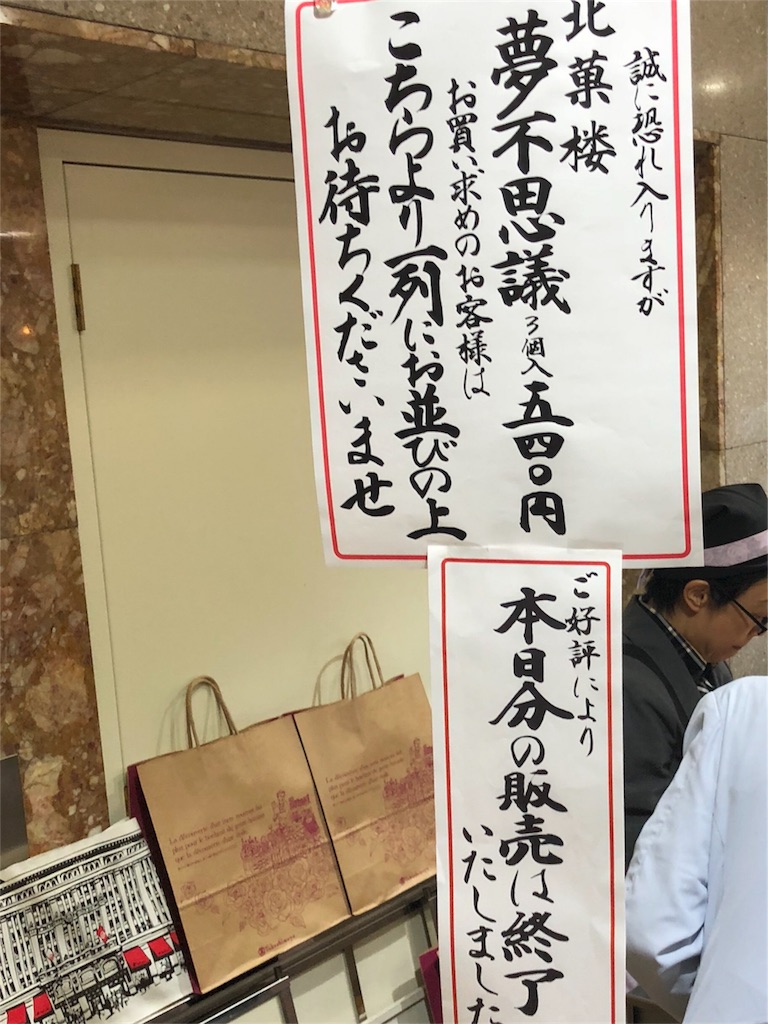 誠に恐れ入りますが
北菓楼
夢不思議 3個入 五四〇円
お買い求めのお客様は
こちらより一列にお並びの上
お待ちくださいませ
ご好評により
本日分の販売は終了
いたしました
La découverte d'un mets nouveau
fait plus pour le bonheur du genre humain
que la découverte d'une étoile.